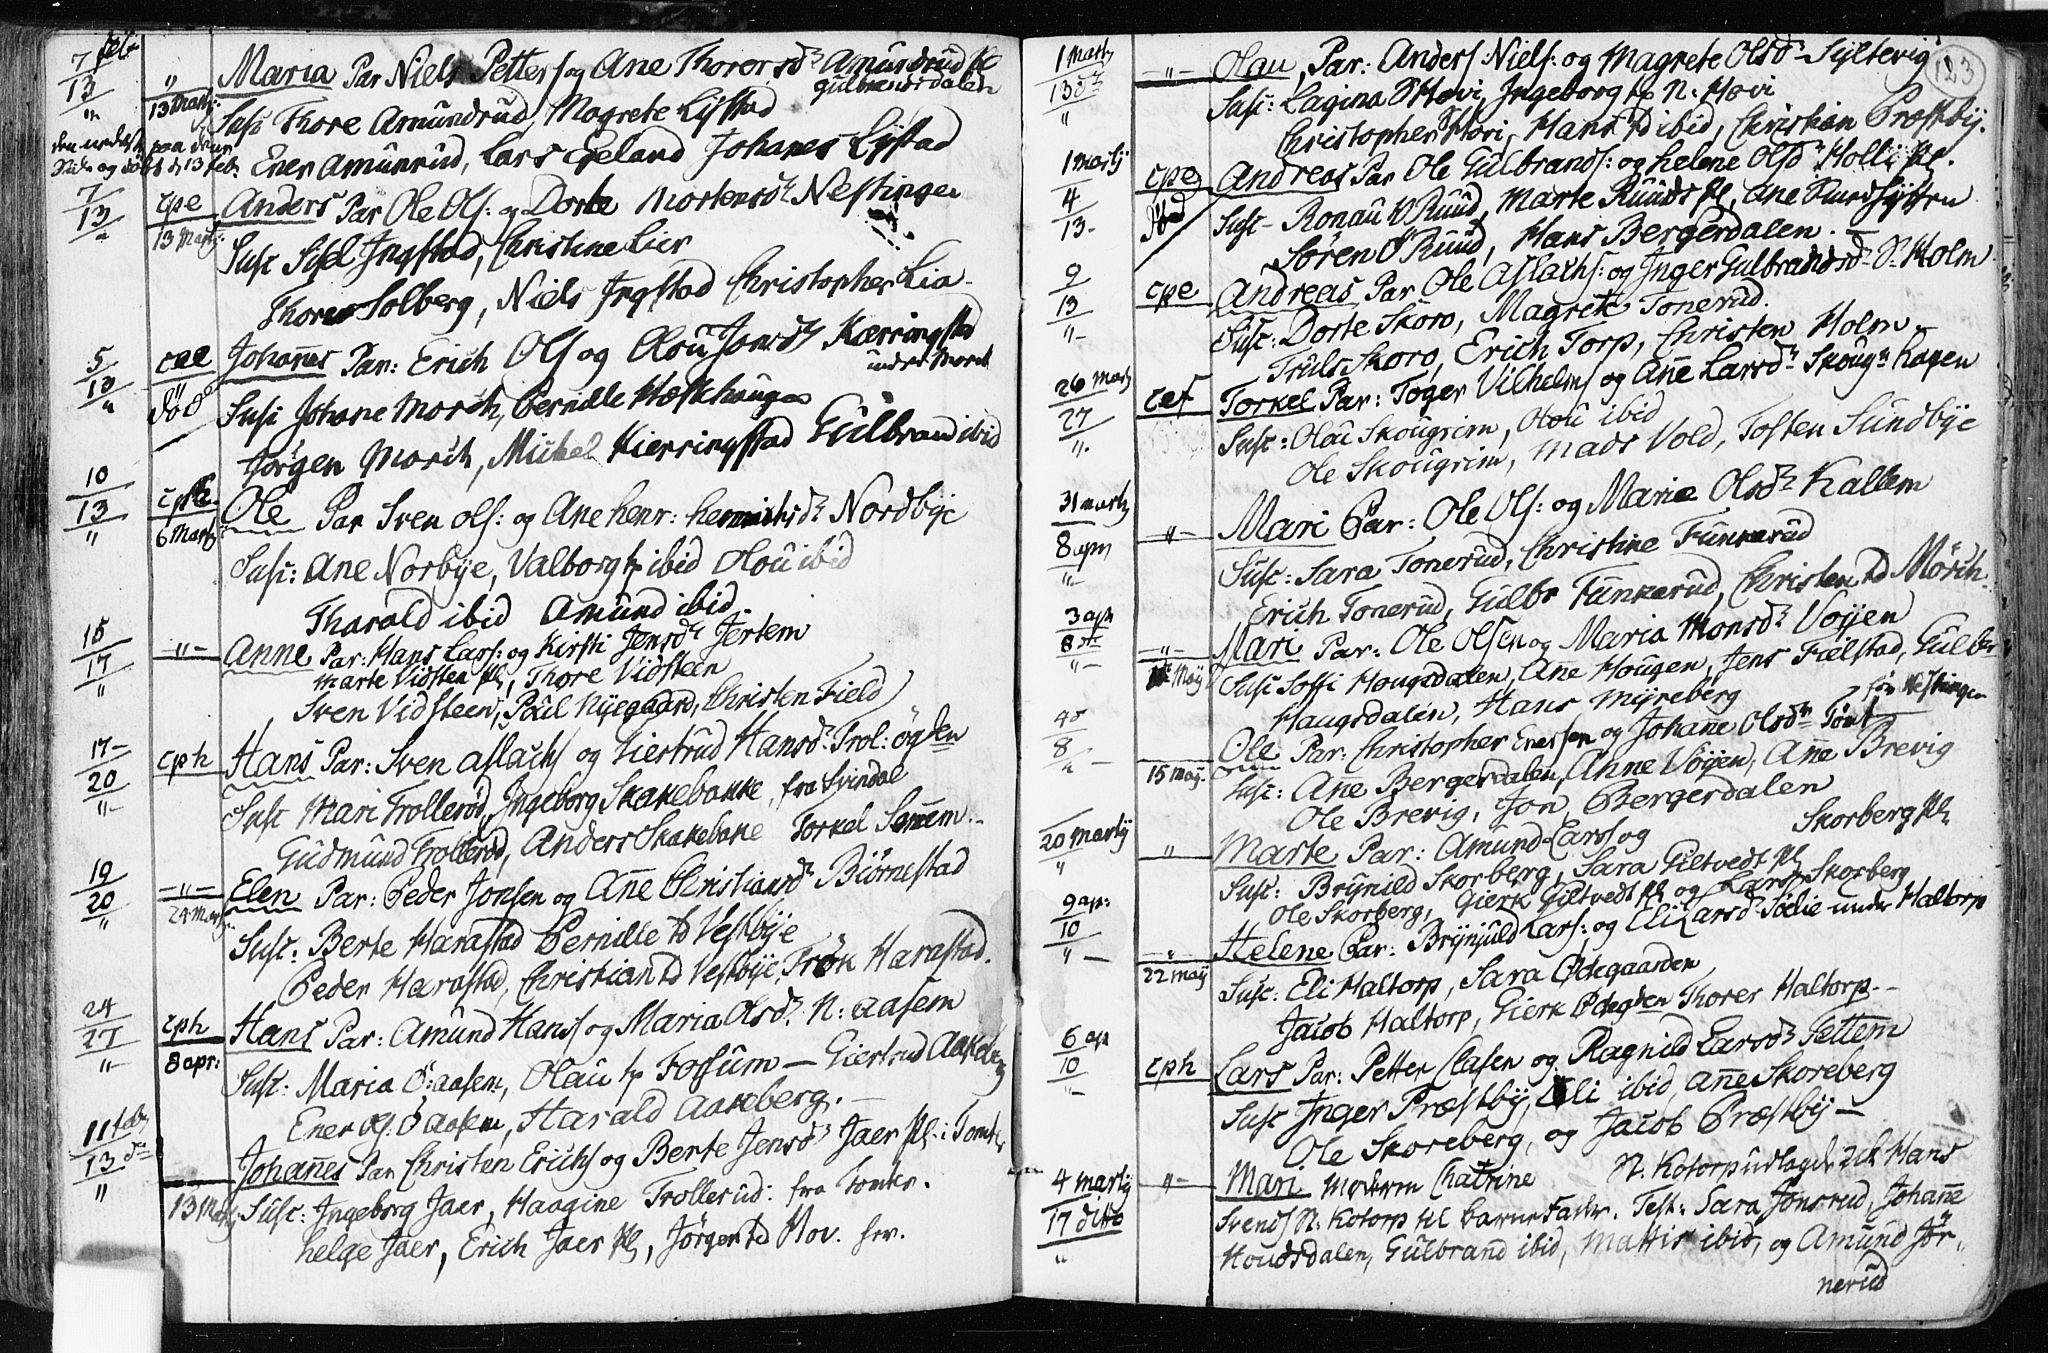 7 feb
13
"
13 Martj:
Maria Par Niels Petters og Ane Thorersdr Amundrud pl
Gulbransrdalen
Susc Thore Amundrud, Magrete Lystad
13 feb:
Ener Amunrud, Lars Egeland Johanes Lystad
7
13
"
cpe
13 Martj:
Anders Par Ole Ols: og Dorte Mortensdr Nestingen
Susc Sisel Ingstad, Christine Lier
Thorer Solberg, Niels Ingstad Christopher Lia
5
13
"
cae
død
Johannes Par: Erich Ols og Olou Jonsdr Kærringstad
under Morck
Susc Johane Morck, Pernille Hæskhaugen
Jørgen Morck, Mickel Kierringstad Gulbran ibid
10
13
"
6 Martj
Ole Par Sven Ols: og Ane henr: Nordbye
Susc: Ane Norbye, Valborg ibid Olou ibid
Tharald ibid Amund ibid
15
17
"
Anne Par: Hans Lars: og Kirsti Jensdr Jertem
Marte Vidsten pl, Thore Vidsteen
Sven Vidsteen, Poul Nyegaard, Christen Field
17
20
"
cph
Hans Par: Sven Aslachs og Giertrud Hansdr Trol: ødden
Susc Mari Trollerød, Ingeborg Skakebakke, fra Svindal
Gudmund Trollerød, Anders Skakebake Torkel Semem
19
20
"
24 Martj:
Elen Par: Peder Jonsen og Anne Christiansdr Biørnestad
Susc: Berte Harastad Pernille Vestbye
Peder Harastad, Christian Vestbye, Trøk Harastad.
24
27
"
cph
8 apr:
Hans Par: Amund Hans og Maria Olsdr N: Aasem
Susc: Maria O: Aasem, Olau Fossum — Giertrud Aakeberg
Ener Aasem, Harald Aakeberg. —
11 feb
13 do
"
13 Martj
Johannes Par Christen Erichs og Berte Jensdr Jaer pl: i Tomter
Susc: Ingeborg Jaer, Haagine Trollerud: fra Tomter.
helge Jaer, Erich Jaer pl, Jørgen Hov. hv.
123
1 Martj
13 do
"
Olau, Par: Anders Niels: og Magrete Olsdr Syltevig
Susc: Lagina Hovi, Ingeborg N: Hovi
Christopher Hovi, Hans ibid, Christian Prestby.
1 Martij
4
13
cpe
død
Andreas Par Ole Gulbrands: og helene Olsdr Holli pl.
Susc Ronau Ruud, Marte Ruuds pl, Ane Ruudsytten
Søren Ø Ruud, Hans Bergerdalen. —
9
13
"
cpe
Andreas Par Ole Aslachs: og Inger Gulbrandsdr S: Holm
Susc: Dorte Skoro, Magrete Tonerud.
Truls Skoro, Erich Torp, Christen Holm
26 Martj
27
"
caf
Torkel Par: Toger Vilhelms og Anne Larsdr Skoug: hagen
Susc: Olou Skougrim, Olou ibid
Ole Skougrim, Mads Vold, Tosten Sundbye
31 Martj
8 apr
"
Mari Par: Ole Ols: og Maria Olsdr Kallem
Susc: Sara Tonerud, Christine Funnerud
Erich Tonerud, Gulbr Funnerud, Christen Mörch.
3 apr
8 do
"
Maij
Mari Par: Ole Olsen og Maria Monsdr Voyen
Susc Soffi Hougsdalen, Ane Hougen, Jens Fuelstad, Gulbr
Haugsdalen, Hans Myreberg
8
"
15 Maij:
Ole Par: Christopher Enersen og Johane Olsdr Tomt
Nestingen
Susc: Ane Bergerdalen, Anne Voyen, Anne Brevig
Ole Brevig, Jon Bergerdalen
20 Martij
"
Marte Par: Amund Lars og
Skorberg pl
Susc: Brynild Skorberg, Sara Giltvedt pl Skorberg
Ole Skorberg, Gierk Giltvedt pl og Lars Skorberg
9 ap:
10
"
22 Maij
Helene Par: Brynjuld Lars: og Eli Larsd Sælie under Haltorp
Susc: Eli Haltorp, Sara Ødegaarden
Jacob Haltorp, Gierk Ødegden Thorer Haltorp. —
6 ap
10
"
cph
Lars Par: Petter Clasen og Ragnild Larsdr Settem
Susc Inger Præstby, Eli ibid, Anne Skoreberg
Ole Skoreberg, og Jacob Præstby —
4 Martij
17 ditto
"
Mari Moderen Chatrine St. Kotorp udlagde Hans
Svends St: Kotorp til barne Fader. Test: Sara Jonsrud, Johanne
Houdsdalen, Gulbrand ibid, Mattis ibid, og Amund Jør,
nerud